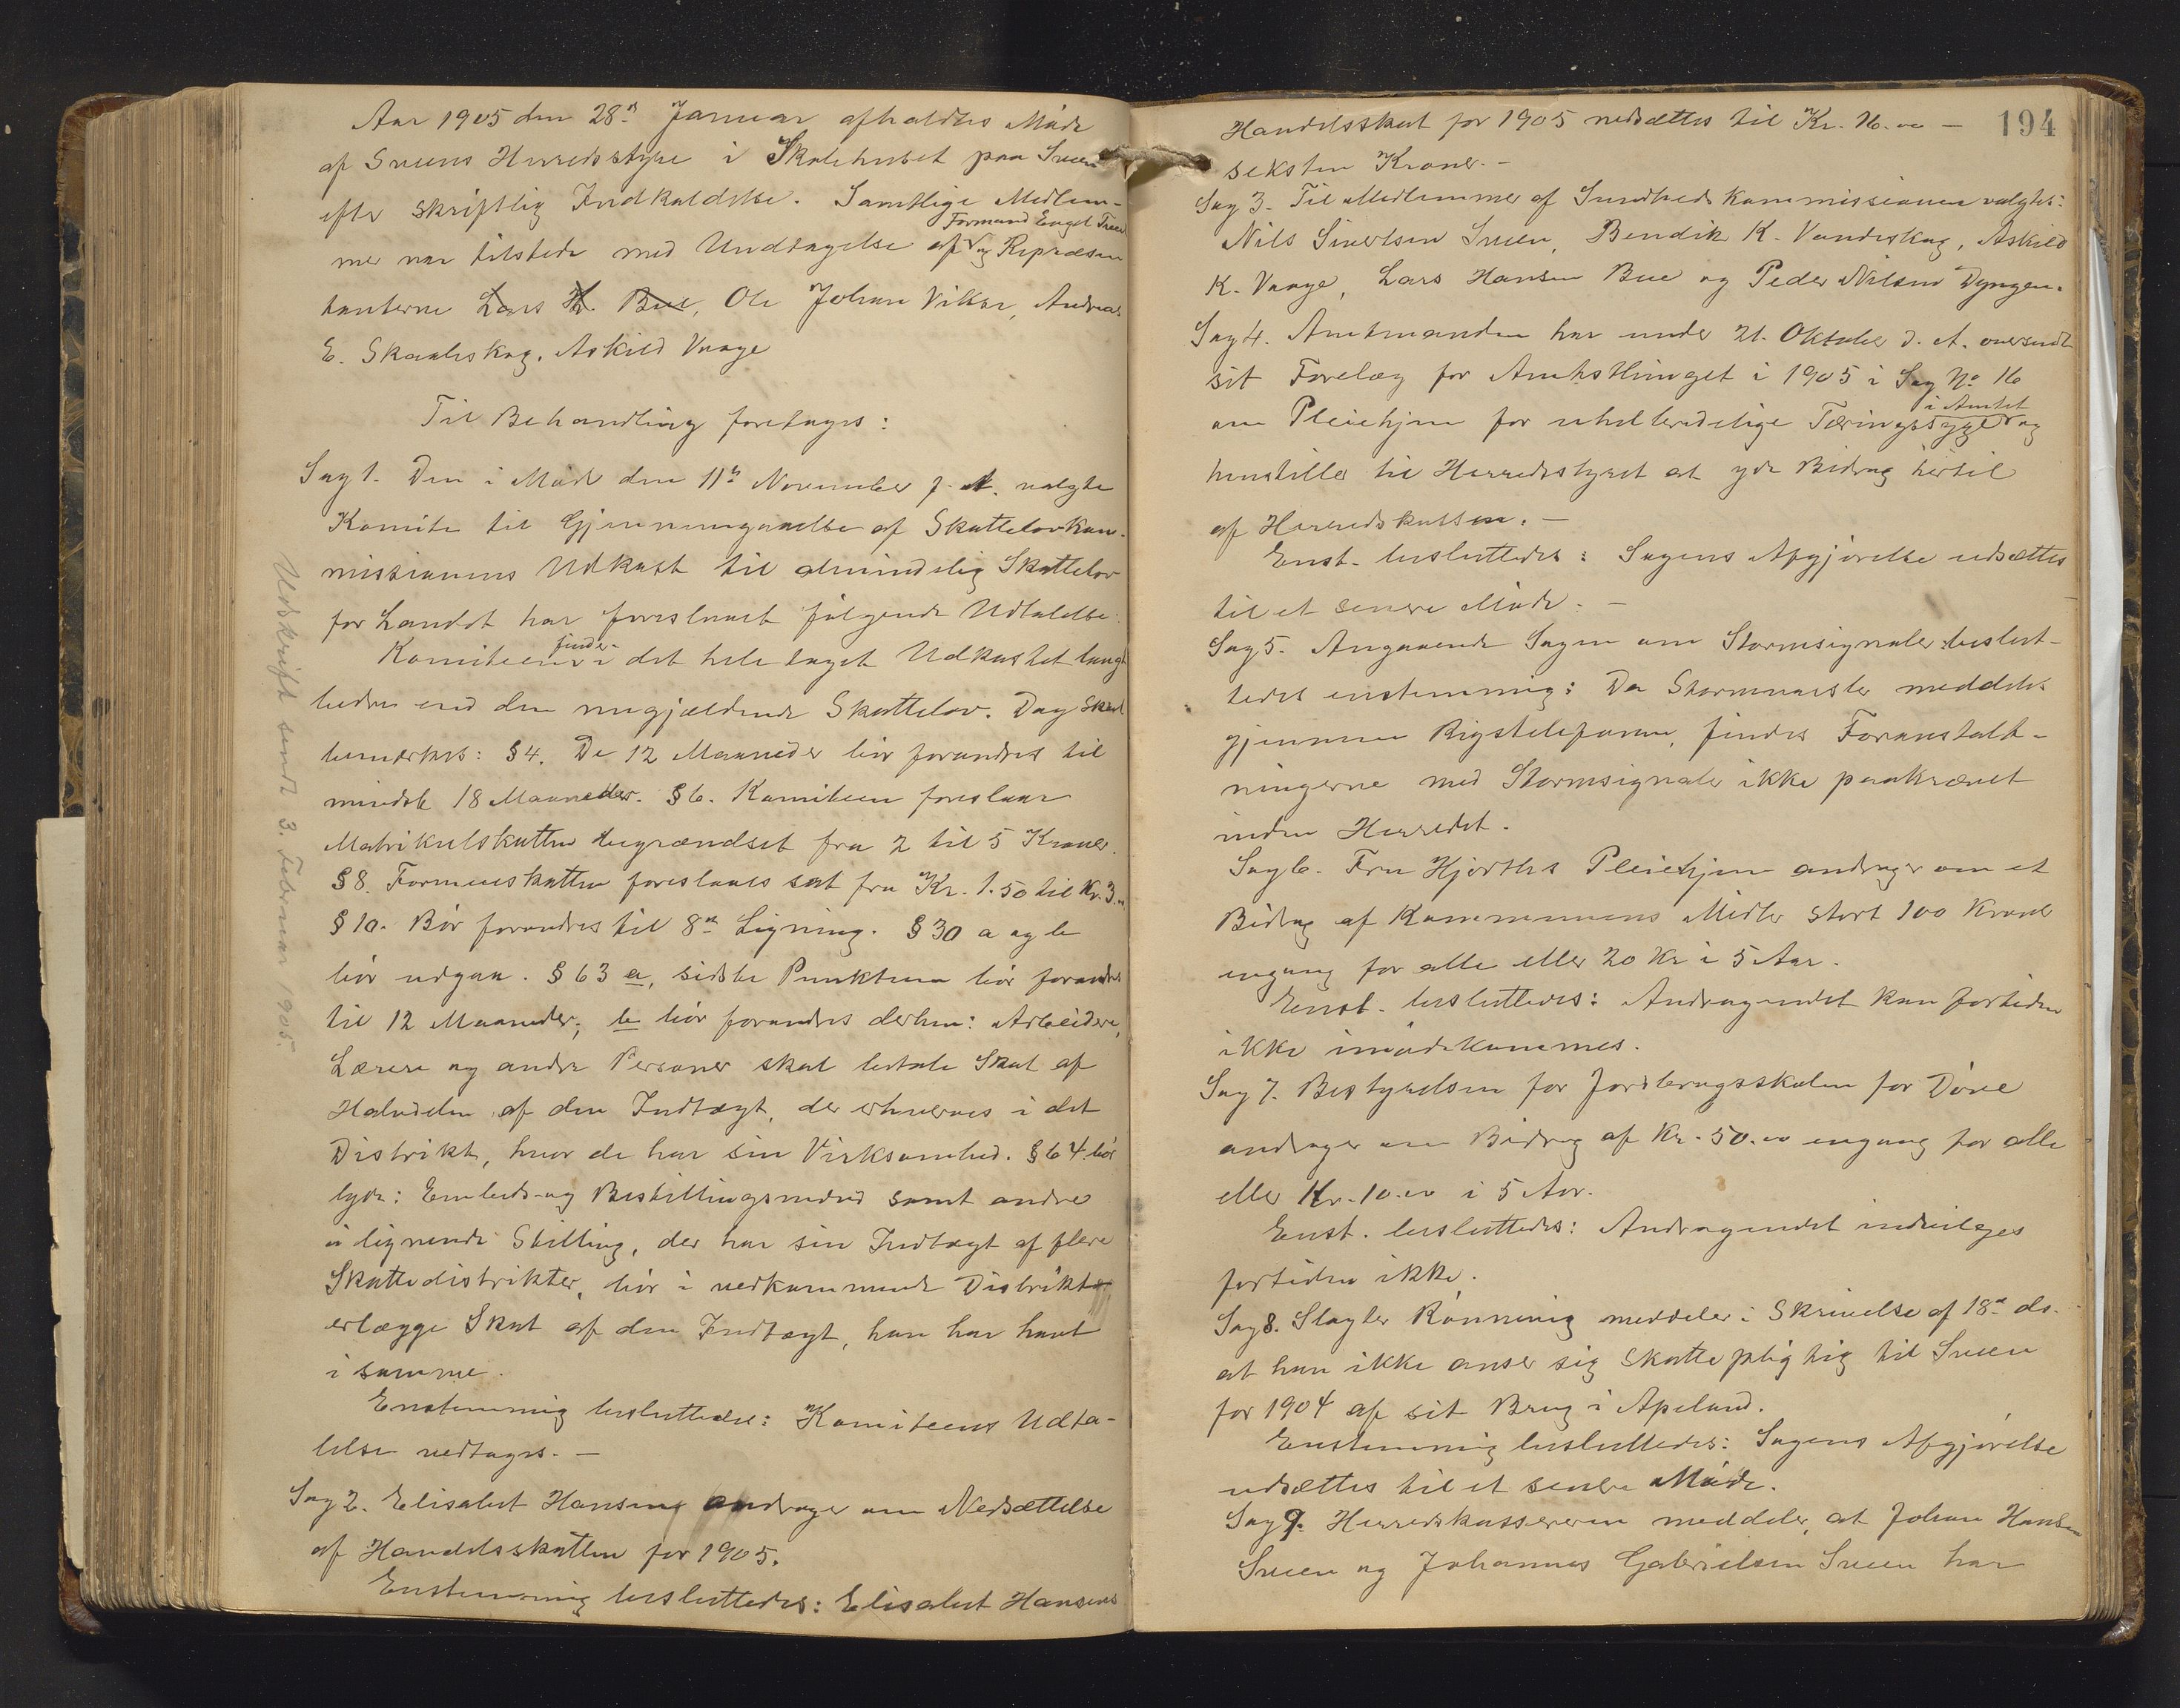 Aar 1905 den 28n Januar afholdtes Møde
af Sveens Herredsstyre i Skolehuset paa Sveen
efter skriftlig Indkaldelse. Samtlige Medlem-
Formand Engel Tveit
mer var tilstede med Undtagelse af og Repræsen
tanterne Lars H. Bue, Ole Johan Vikse, Andreas
E. Skaaleskog, Askild Vaage
Til Behandling foretoges:
Sag 1. Den i Møde den 11te November f. A. valgte
Komite til Gjennemgaaelse af Skattelovkom-
missionens Udkast til almindelig Skattelov
for Landet har foreslaaet følgende Udtalelse:
finder
Komiteen i det hele taget Udkastet langt
bedre end den nugjældende Skattelov. Dog skal
bemærkes: § 4. De 12 Maaneder bør forandres til
mindst 18 Maaneder. § 6. Komiteen foreslaar
Matrikulskatten begrændset fra 2 til 5 Kroner.
§ 8. Formueskatten foreslaaes sat fra Kr. 1.50 til Kr. 3.00
§ 10. Bør forandres til 8de Ligning. § 30 a og b
bør udgaa. § 63 a, sidste Punktum bør forandres
til 12 Maaneder; b bør forandres derhen: Arbeidere,
Lærere og andre Personer skal betale Skat af
Halvdelen af den Indtægt, der erhverves i det
Distrikt, hvor de har sin Virksomhed. § 64 bør
lyde: Embeds- og Bestillingsmænd samt andre
i lignende Stilling, der har sin Indtægt af flere
Skattedistrikter, bør i vedkommende Distrikt
erlægge Skat af den Indtægt, han har havt
i samme.
Enstemmig besluttedes: Komiteens Udta-
lelse vedtages. -
Sag 2. Elisabet Hansen andrager om Nedsættelse
af Handelsskatten for 1905.
Enstemmig besluttedes: Elisabet Hansens
Udskrift sendt 3. Februar 1905.
194
Handelsskat for 1905 nedsættes til Kr. 16.00 -
seksten Kroner. -
Sag 3. Til Medlemmer af Sundhedskommissionen valgtes:
Nils Sivertsen Sveen, Bendik K. Vandeskog, Askild
K. Vaage, Lars Hansen Bue og Peder Nilsen Dyngen.
Sag 4. Amtmanden har under 21. Oktober d. A. oversendt
sit Forelæg for Amtsthinget i 1905 i Sag No 16
i Amtet
om Pleiehjem for uhelbredelige Tæringssyge og
henstiller til Herredsstyret at yde Bidrag hertil
af Herredskassen. -
Enst. besluttedes: Sagens Afgjørelse udsættes
til et senere Møde. -
Sag 5. Angaaende Sagen om Stormsignaler beslut-
tedes enstemmig: Da Stormvarsler meddeles
gjennem Rigstelefonen, findes Foranstalt-
ningerne med Stormsignaler ikke paakrævet
inden Herredet.
Sag 6. Fru Hjorths Pleiehjem andrager om et
Bidrag af Kommunens Midler stort 100 Kroner
engang for alle eller 20 Kr i 5 Aar.
Enst. besluttedes: Andragendet kan fortiden
ikke imødekommes.
Sag 7. Bestyrelsen for Jordbrugsskolen for Døve
andrager om Bidrag af Kr. 50.00 engang for alle
eller Kr. 10.00 i 5 Aar.
Enst. besluttedes: Andragendet indvilges
fortiden ikke.
Sag 8. Slagter Rønning meddeler i Skrivelse af 18de ds.
at han ikke anser sig skattepligtig til Sveen
for 1904 af sit Brug i Apeland.
Enstemmig besluttedes: Sagens Afgjørelse
udsættes til et senere Møde.
Sag 9. Herredskassereren meddeler, at Johan Hansen
Sveen og Johannes Gabrielsen Sveen har